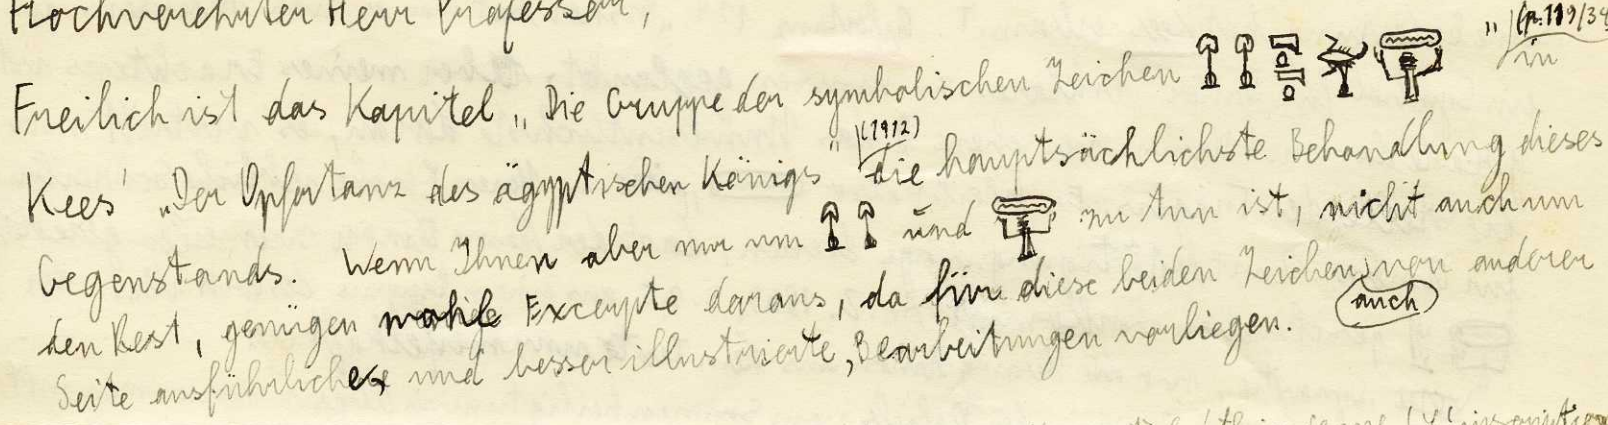 Hochverehrter Herr Professor,
Freilich ist das Kapitel „Die Gruppe der symbolischen Zeichen " (p. 119/ in
Kees' „Der Opfertanz des ägyptischen Königs" (1912) die hauptsächlichste Behandlung dieses
Gegenstands. Wenn Ihnen aber nur um und zu tun ist, nicht auch um
den Rest, genügen Excerpte daraus, da für diese beiden Zeichen auch von anderer
Seite ausführliche, und besser illustrierte, Bearbeitungen vorliegen.